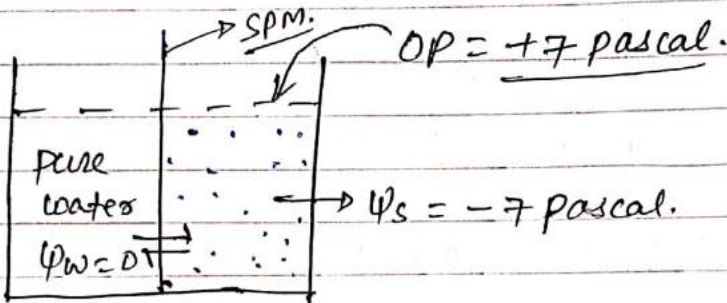 SPM.
OP = +7 pascal.
pure
water
Ψw = 0
Ψs = -7 pascal.